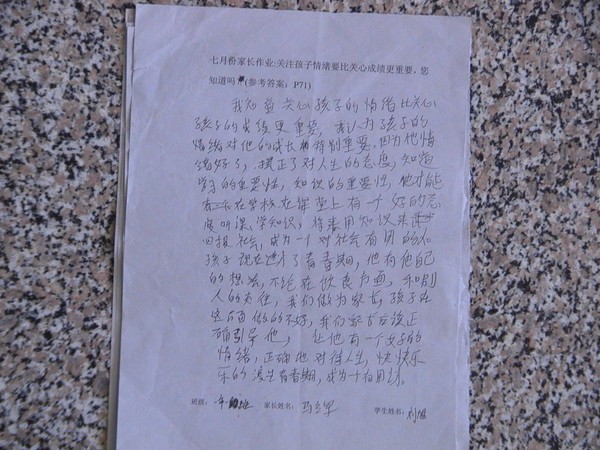 七月份家长作业:关注孩子情绪要比关心成绩更重要，您
知道吗 (参考答案：P71)
我知道关心孩子的情绪比关心
孩子的成绩更重要，我认为孩子的
情绪对他的成长特别重要，因为他情
绪好了，摆正了对人生的态度，知道
学习的重要性，知识的重要性，他才能
在学校在课堂上有一个好的态
度听课、学知识，将来用知识来
回报社会，成为一个对社会有用的人。
孩子现在进入了青春期，他有他自己
的想法，不论在饮食方面，和别
人的交往，我们做为家长，孩子在
些方面做的不好，我们家长应该正
确引导他，让他有一个好的
情绪，正确他对待人生，快快乐
乐的渡过青春期，成为一个有用
班级： 家长姓名： 学生姓名：